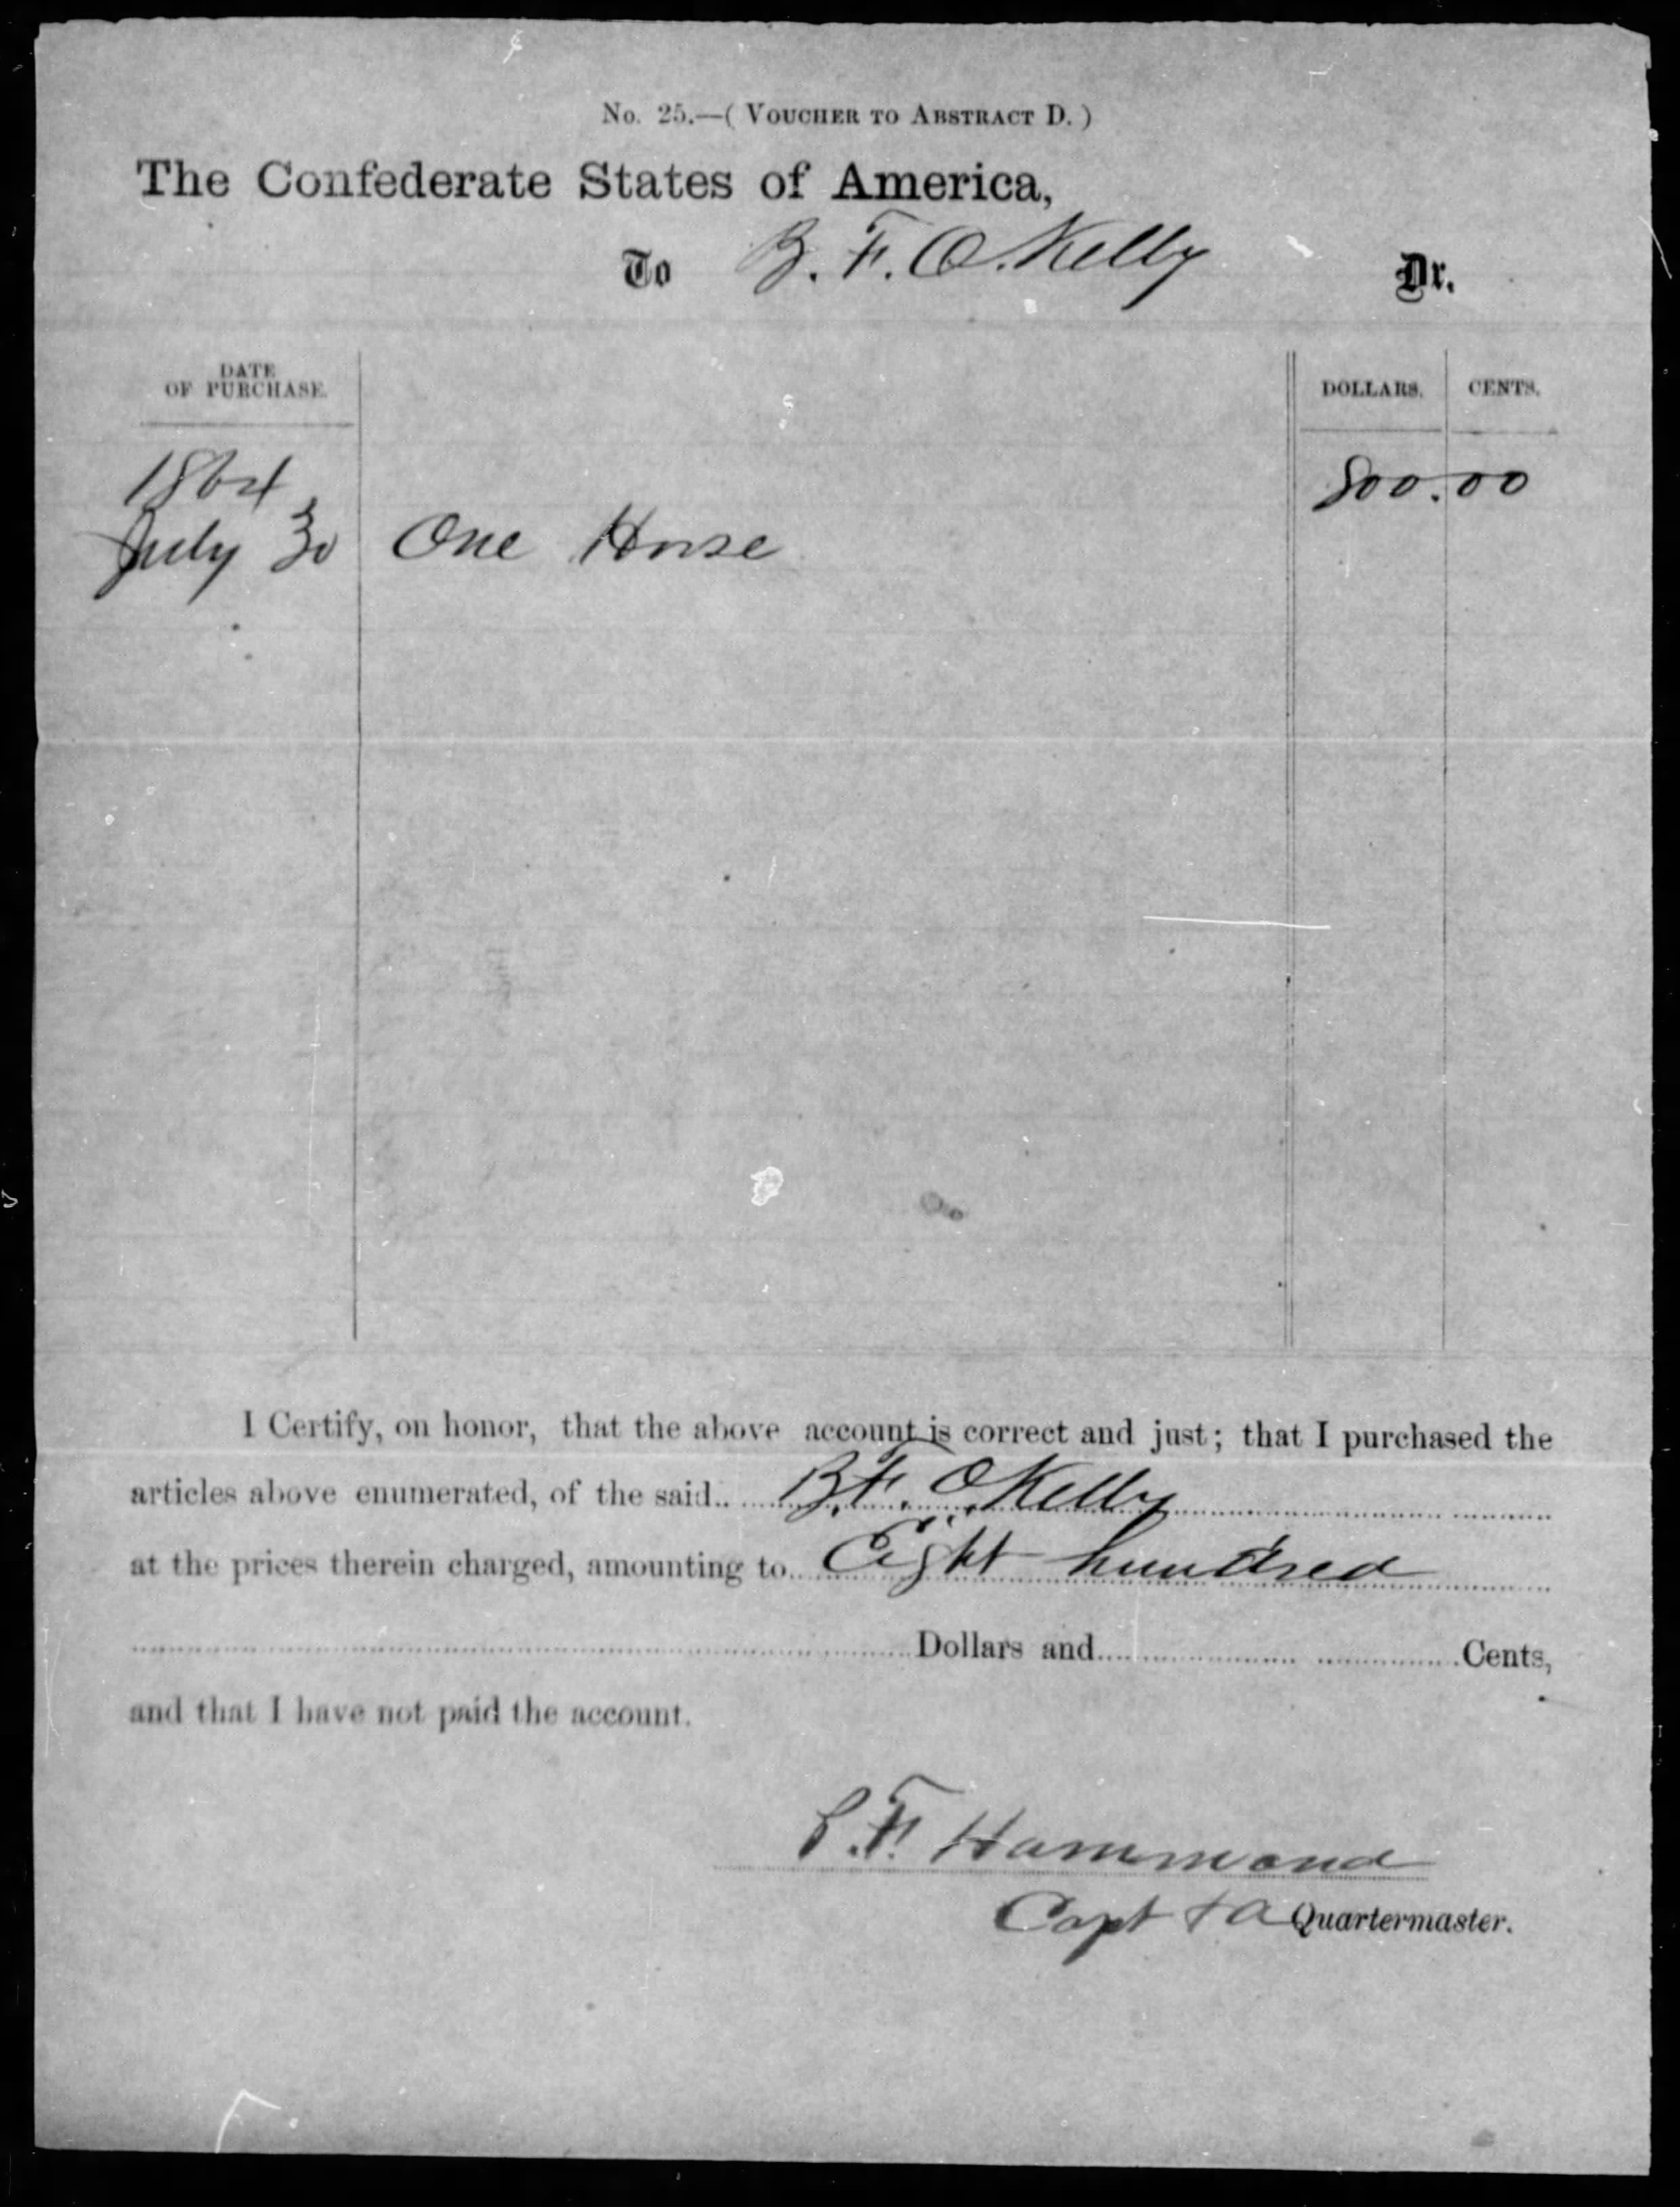 No. 25.—( VOUCHER TO ABSTRACT D. )
The Confederate States of America,
To B. F. O.Kelly Dr.
DATE OF PURCHASE. DOLLARS. CENTS.
1864 800.00
July 30 One Horse
I Certify, on honor, that the above account is correct and just; that I purchased the
articles above enumerated, of the said B.F. O.Kelly
at the prices therein charged, amounting to Eight hundred
Dollars and Cents,
and that I have not paid the account.
S.F. Hammond
Capt + A Quartermaster.